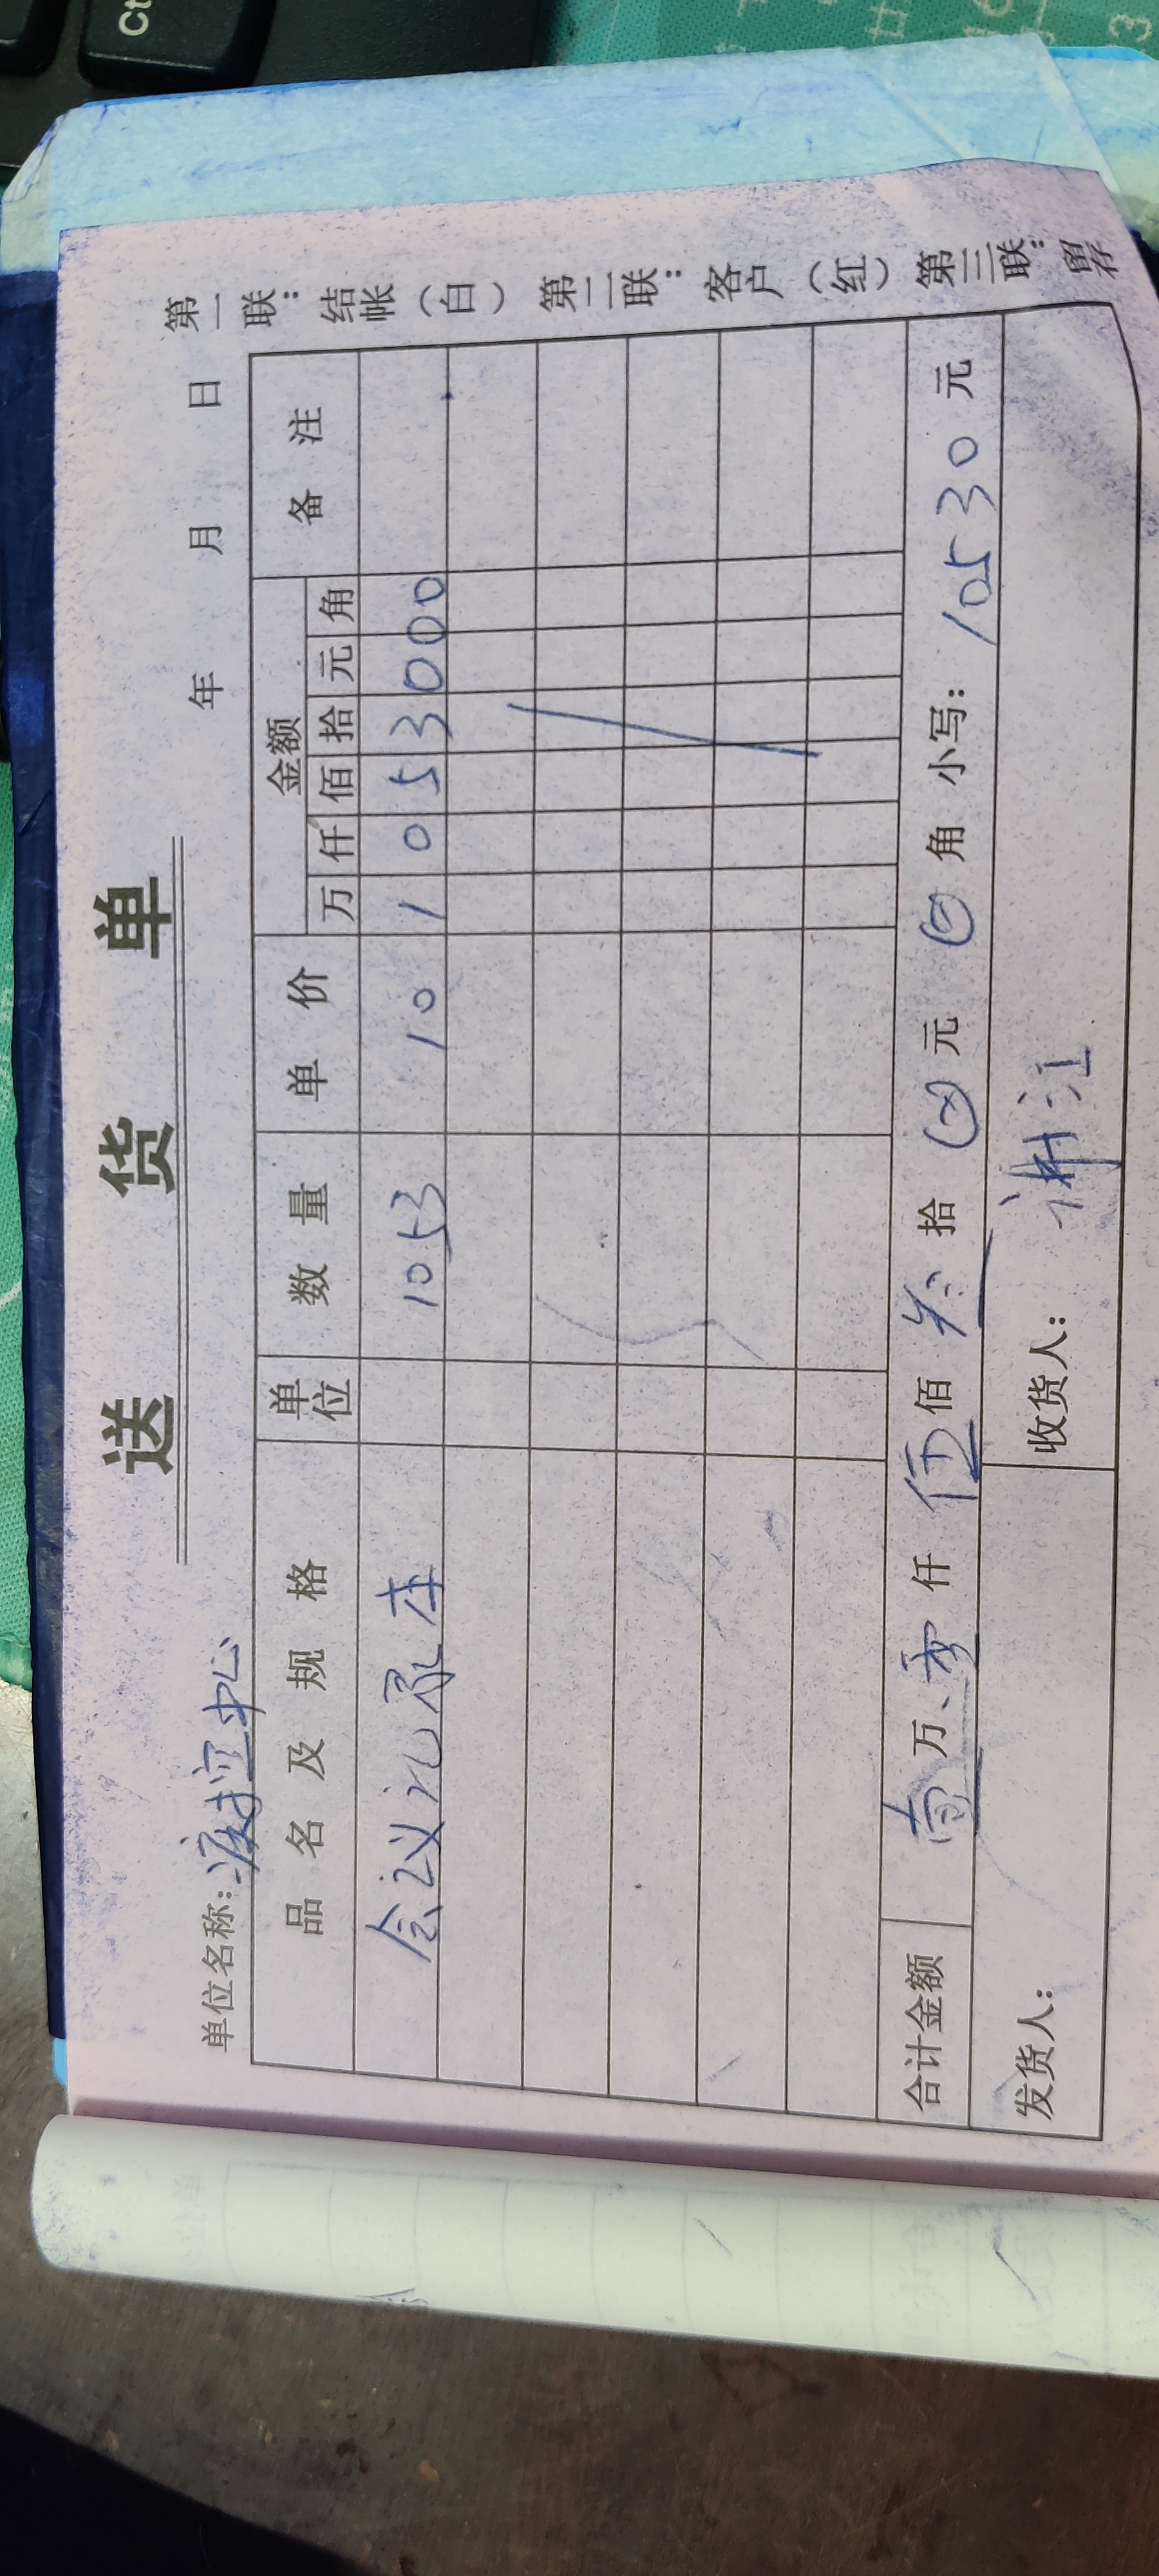 送 货 单
单位名称：疾控中心 年 月 日
品 名 及 规 格 单位 数 量 单 价 金额 备 注
万 仟 佰 拾 元 角
会议记录本 1053 10 1053000
合计金额 壹万、零仟伍佰叁拾⊗元⊗角 小写：10530元
发货人： 收货人：
第一联：结帐（白） 第二联：客户（红） 第三联：留存
Ct